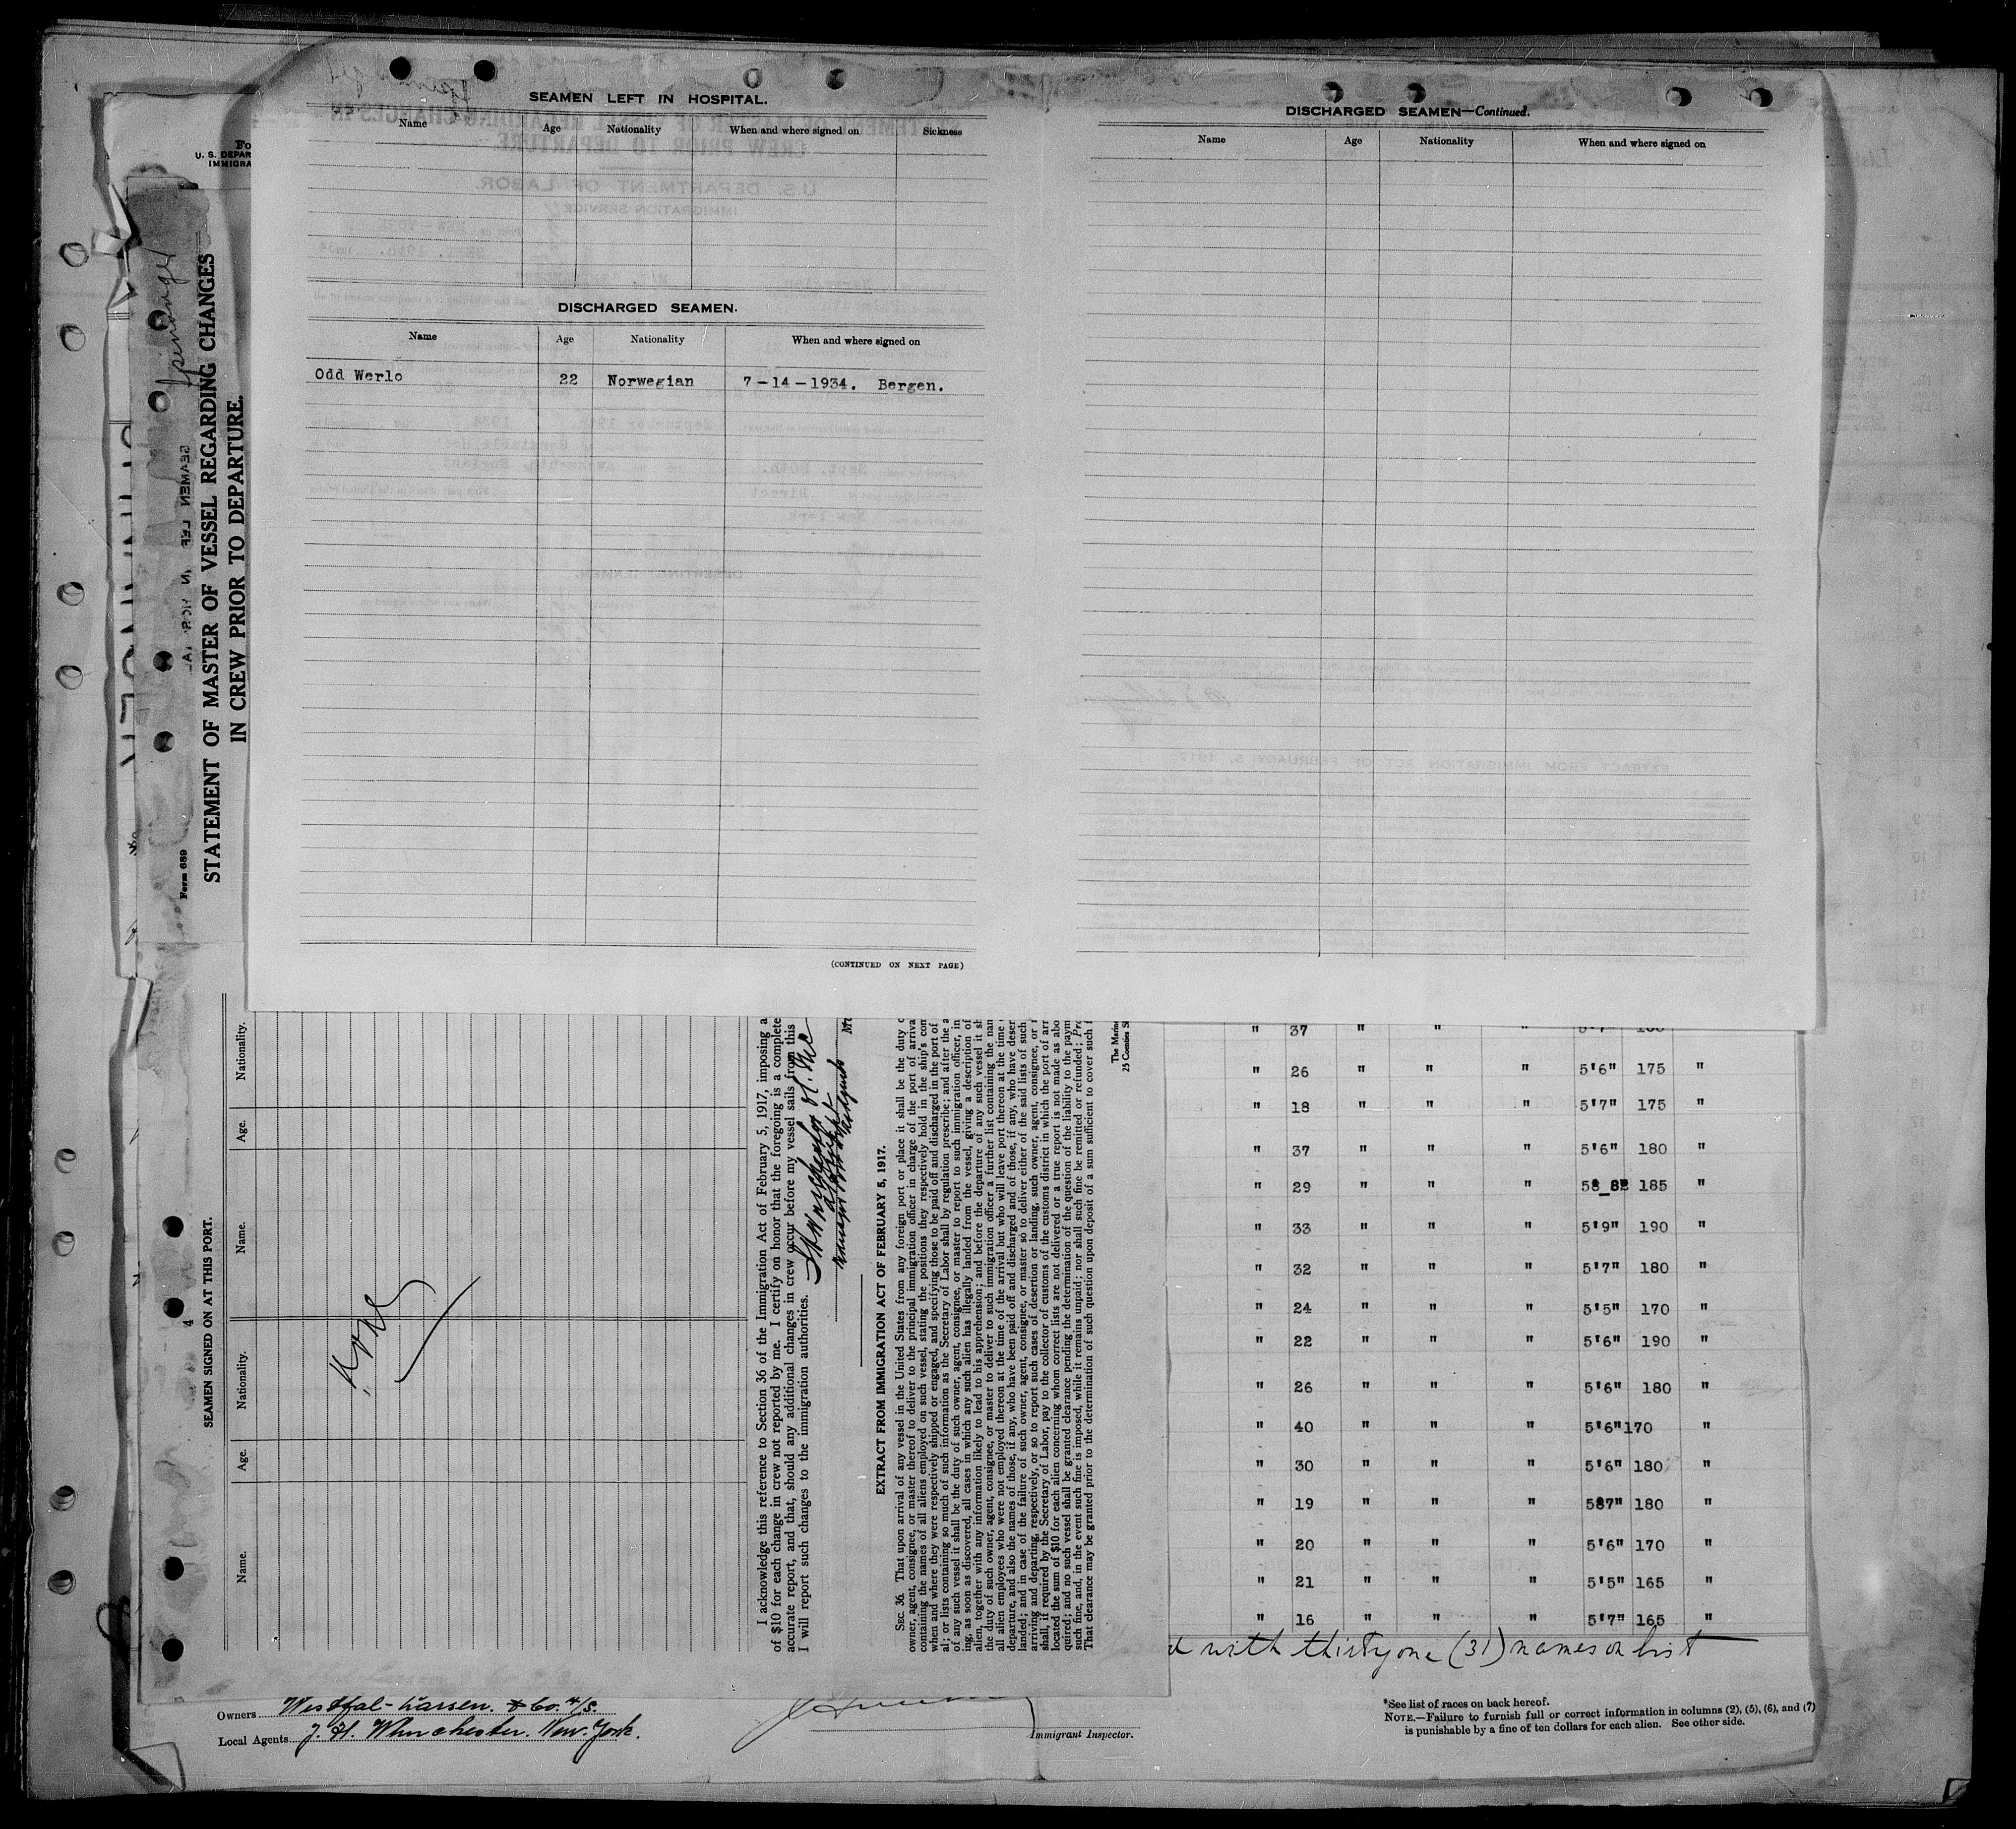 SEAMEN LEFT IN HOSPITAL.
Name Age Nationality When and where signed on Sickness
DISCHARGED SEAMEN.
Name Age Nationality When and where signed on
Odd Werlo 22 Norwegian 7-14-1934. Bergen.
(CONTINUED ON NEXT PAGE)
DISCHARGED SEAMEN—Continued.
Name Age Nationality When and where signed on
Fo
U. S. DEPAR
IMMIGRA
Spinanger
Form 689
STATEMENT OF MASTER OF VESSEL REGARDING CHANGES
IN CREW PRIOR TO DEPARTURE.
4
SEAMEN SIGNED ON AT THIS PORT.
Name. Age. Nationality. Name. Age. Nationality.
I acknowledge this reference to Section 36 of the Immigration Act of February 5, 1917, imposing a
of $10 for each change in crew not reported by me. I certify on honor that the foregoing is a complete
accurate report, and that, should any additional changes in crew occur before my vessel sails from this
I will report such changes to the immigration authorities.
EXTRACT FROM IMMIGRATION ACT OF FEBRUARY 5, 1917.
SEC. 36. That upon arrival of any vessel in the United States from any foreign port or place it shall be the duty o
owner, agent, consignee, or master thereof to deliver to the principal immigration officer in charge of the port of arrival
containing the names of all aliens employed on such vessel, stating the positions they respectively hold in the ship's com
when and where they were respectively shipped or engaged, and specifying those to be paid off and discharged in the port of
al; or lists containing so much of such information as the Secretary of Labor shall by regulation prescribe; and after the a
of any such vessel it shall be the duty of such owner, agent, consignee, or master to report to such immigration officer, in
ing, as soon as discovered, all cases in which any such alien has illegally landed from the vessel, giving a description of
alien, together with any information likely to lead to his apprehension; and before the departure of any such vessel it sh
the duty of such owner, agent, consignee, or master to deliver to such immigration officer a further list containing the nam
all alien employees who were not employed thereon at the time of the arrival but who will leave port thereon at the time
departure, and also the names of those, if any, who have been paid off and discharged and of those, if any, who have deser
landed; and in case of the failure of such owner, agent, consignee, or master so to deliver either of the said lists of such
arriving and departing, respectively, or so to report such cases of desertion or landing, such owner, agent, consignee, or
shall, if required by the Secretary of Labor, pay to the collector of customs of the customs district in which the port of arr
located the sum of $10 for each alien concerning whom correct lists are not delivered or a true report is not made as abo
quired; and no such vessel shall be granted clearance pending the determination of the question of the liability to the paym
such fine, and, in the event such fine is imposed, while it remains unpaid; nor shall such fine be remitted or refunded; Pro
That clearance may be granted prior to the determination of such question upon deposit of a sum sufficient to cover such f
The Marine
25 Coenties Sl
" 37 " " "
" 26 " " " 5'6" 175 "
" 18 " " " 5'7" 175 "
" 37 " " " 5'6" 180 "
" 29 " " " 185 "
" 33 " " " 5'9" 190 "
" 32 " " " 5'7" 180 "
" 24 " " " 5'5" 170 "
" 22 " " " 5'6" 190 "
" 26 " " " 5'6" 180 "
" 40 " " " 5'6" 170 "
" 30 " " " 5'6" 180 "
" 19 " " " 587" 180 "
" 20 " " " 5'6" 170 "
" 21 " " " 5'5" 165 "
" 16 " " " 5'7" 165 "
with thirtyone (31) names on list
Owners Westfal-Larsen. & Co. A/S.
Local Agents J. H. Winchester. New. York.
Immigrant Inspector.
*See list of races on back hereof.
NOTE.—Failure to furnish full or correct information in columns (2), (5), (6), and (7)
is punishable by a fine of ten dollars for each alien. See other side.